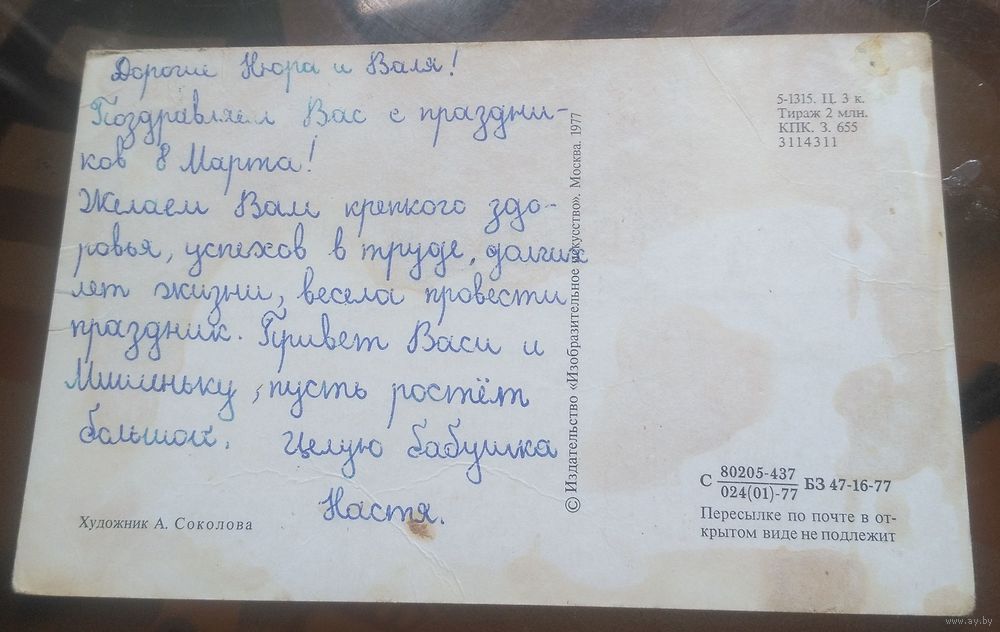 Дорогие Нюра и Валя!
Поздравляем Вас с праздни-
ков 8 Марта!
Желаем Вам крепкого здо-
ровья, успехов в труде, долгих
лет жизни, весела провести
праздник. Привет Васи и
Мишеньку, пусть ростёт
большой. Целую бабушка
Настя.
Художник А. Соколова
© Издательство «Изобразительное искусство». Москва. 1977
5-1315. Ц. 3 к.
Тираж 2 млн.
КПК. З. 655
3114311
С 80205-437 БЗ 47-16-77
024(01)-77
Пересылке по почте в от-
крытом виде не подлежит
www.ay.by